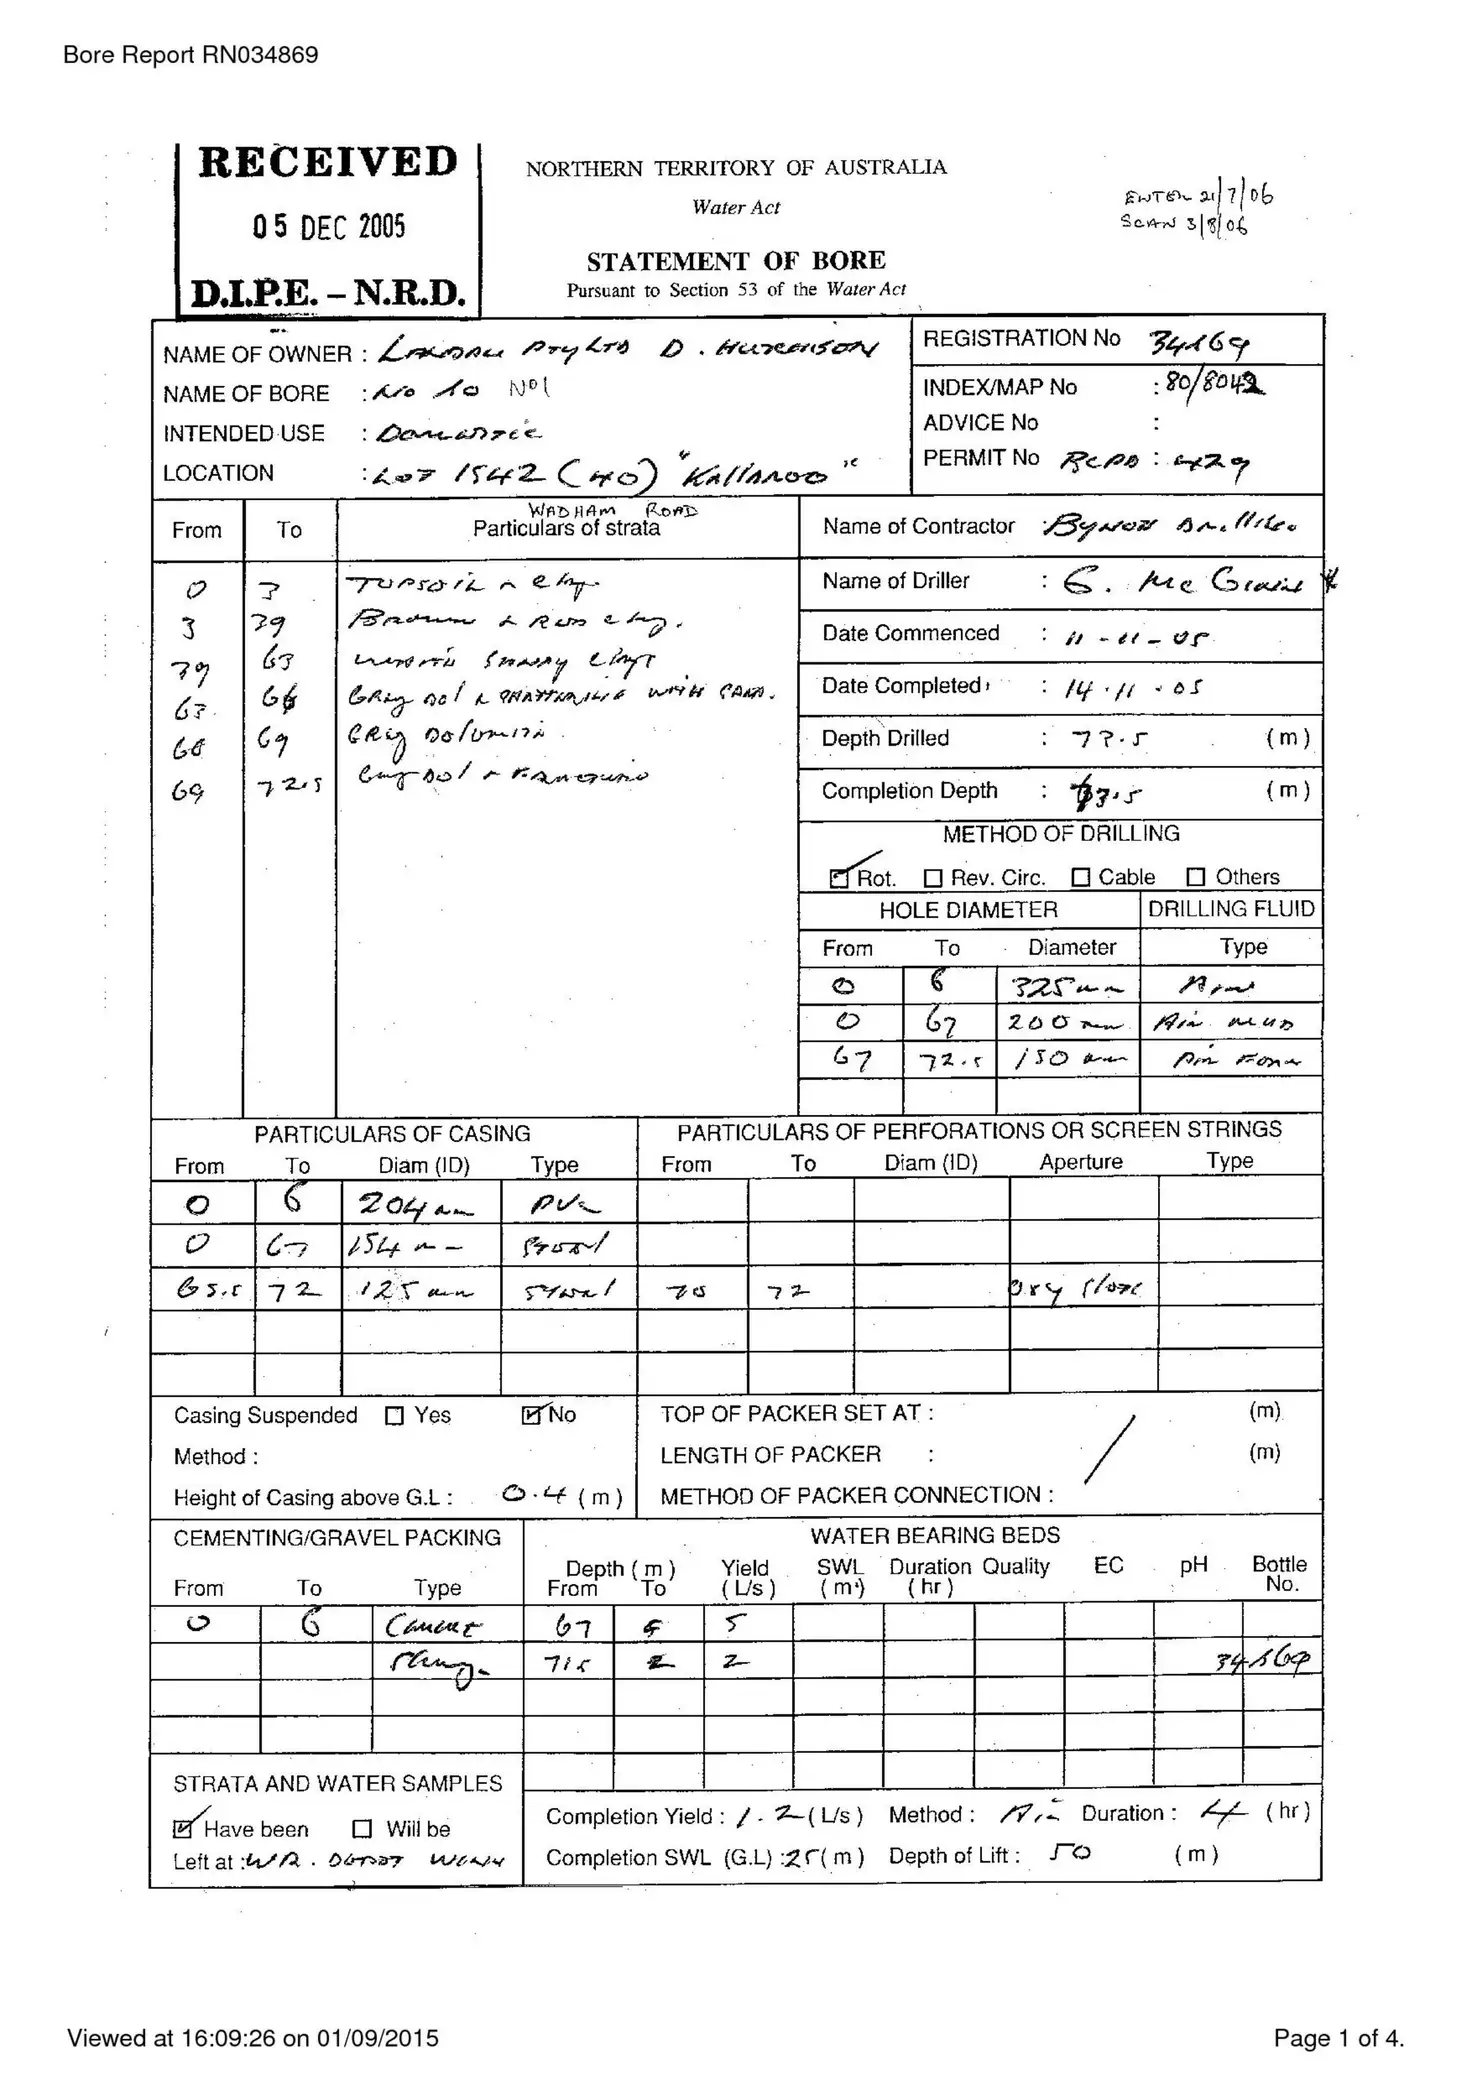 Bore Report RN034869
RECEIVED
05 DEC 2005
D.I.P.E. – N.R.D.
NORTHERN TERRITORY OF AUSTRALIA
Water Act
STATEMENT OF BORE
Pursuant to Section 53 of the Water Act
ENTER 21/7/06
SCAN 3/8/06
NAME OF OWNER : PTY LTD D. HUTCHISON
NAME OF BORE : No 10 No1
INTENDED USE : Domestic
LOCATION : LOT 1542 (40) "Kallaroo"
WADHAM ROAD
REGISTRATION No 34869
INDEX/MAP No : 80/8042
ADVICE No :
PERMIT No RCPD : 429
From To Particulars of strata
0 3 TOPSOIL & Clay
3 39 Brown & Red clay.
39 63 SANDY Clays
63 66 Grey Dol & WITH SAND.
66 69 Grey Dolomite
69 72.5 Grey Dol &
Name of Contractor : Bynon Drilling
Name of Driller : G. McGraine
Date Commenced : 11-11-05
Date Completed : 14.11.05
Depth Drilled : 72.5 (m)
Completion Depth : (m)
METHOD OF DRILLING
☑ Rot. ☐ Rev. Circ. ☐ Cable ☐ Others
HOLE DIAMETER DRILLING FLUID
From To Diameter Type
0 6 325mm Air
0 67 200mm Air mud
67 72.5 150mm Air Foam
PARTICULARS OF CASING
From To Diam (ID) Type
0 6 204mm PVC
0 67 154mm Steel
65.5 72 125mm Steel
PARTICULARS OF PERFORATIONS OR SCREEN STRINGS
From To Diam (ID) Aperture Type
70 72 Oxy Slots
Casing Suspended ☐ Yes ☑ No
Method :
Height of Casing above G.L : 0.4 (m)
TOP OF PACKER SET AT : / (m)
LENGTH OF PACKER : (m)
METHOD OF PACKER CONNECTION :
CEMENTING/GRAVEL PACKING
From To Type
0 6 Cement
Slurry
WATER BEARING BEDS
Depth (m) Yield SWL Duration Quality EC pH Bottle
From To (L/s) (m) (hr) No.
67 5 5
71.5 2 2 34869
STRATA AND WATER SAMPLES
☑ Have been ☐ Will be
Left at : W.R. DEPOT
Completion Yield : 1.2 (L/s) Method : Air Duration : 4 (hr)
Completion SWL (G.L) : 25 (m) Depth of Lift : 50 (m)
Viewed at 16:09:26 on 01/09/2015
Page 1 of 4.